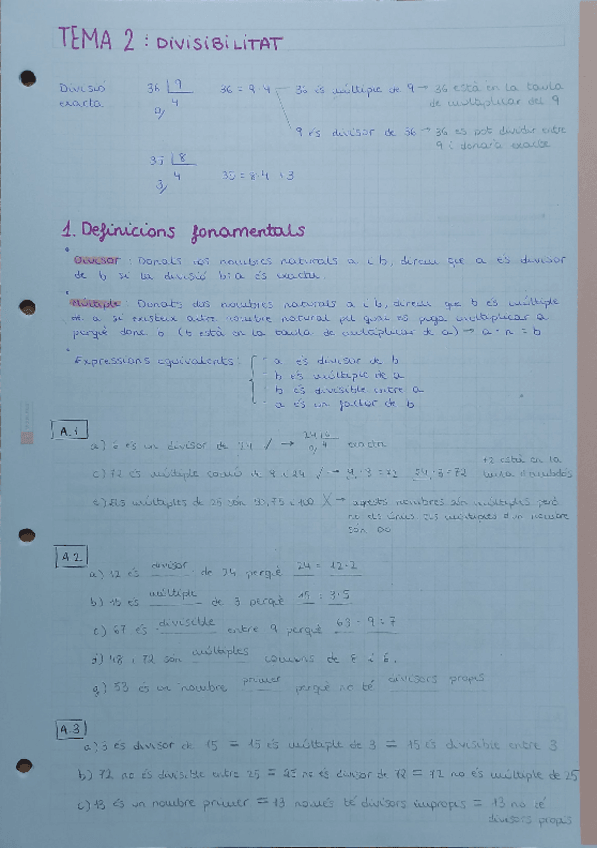 TEMA 2: DIVISIBILITAT
Divisió exacta
36 | 9
0/ 4
36 = 9·4
36 és múltiple de 9 → 36 està en la taula
de multiplicar del 9
9 és divisor de 36 → 36 es pot dividir entre
9 i donarà exacte
35 | 8
3/ 4
35 = 8·4 + 3
1. Definicions fonamentals
Divisor: Donats dos nombres naturals a i b, direm que a és divisor
de b si la divisió b:a és exacta
Múltiple: Donats dos nombres naturals a i b, direm que b és múltiple
de a si existeix altre nombre natural pel qual es puga multiplicar a
perquè done b (b està en la taula de multiplicar de a) → a · n = b
Expressions equivalents:
a és divisor de b
b és múltiple de a
b és divisible entre a
a és un factor de b
A.1
a) 6 és un divisor de 24 ✓ → 24 | 6
0/ 4
exacta
c) 72 és múltiple comú de 9 i 24 ✓ → 24 · 3 = 72
72 està en la
e) Els múltiples de 25 són 50, 75 i 100 X → aquests nombres són múltiples però
no els únics. Els múltiples d'un nombre
són
A.2
a) 12 és divisor de 24 perquè 24 = 12·2
b) 15 és múltiple de 3 perquè 15 = 3·5
és divisible entre 9 perquè 63 : 9 = 7
48 i 72 són múltiples comuns de 8 i 6.
g) 53 és un nombre primer perquè no té divisors propis
A.3
a) 3 és divisor de 15 = 15 és múltiple de 3 = 15 és divisible entre 3
b) 72 no és divisible entre 25 = 25 no és divisor de 72 = 72 no és múltiple de 25
c) 13 és un nombre primer = 13 només té divisors impropis = 13 no té
divisors propis